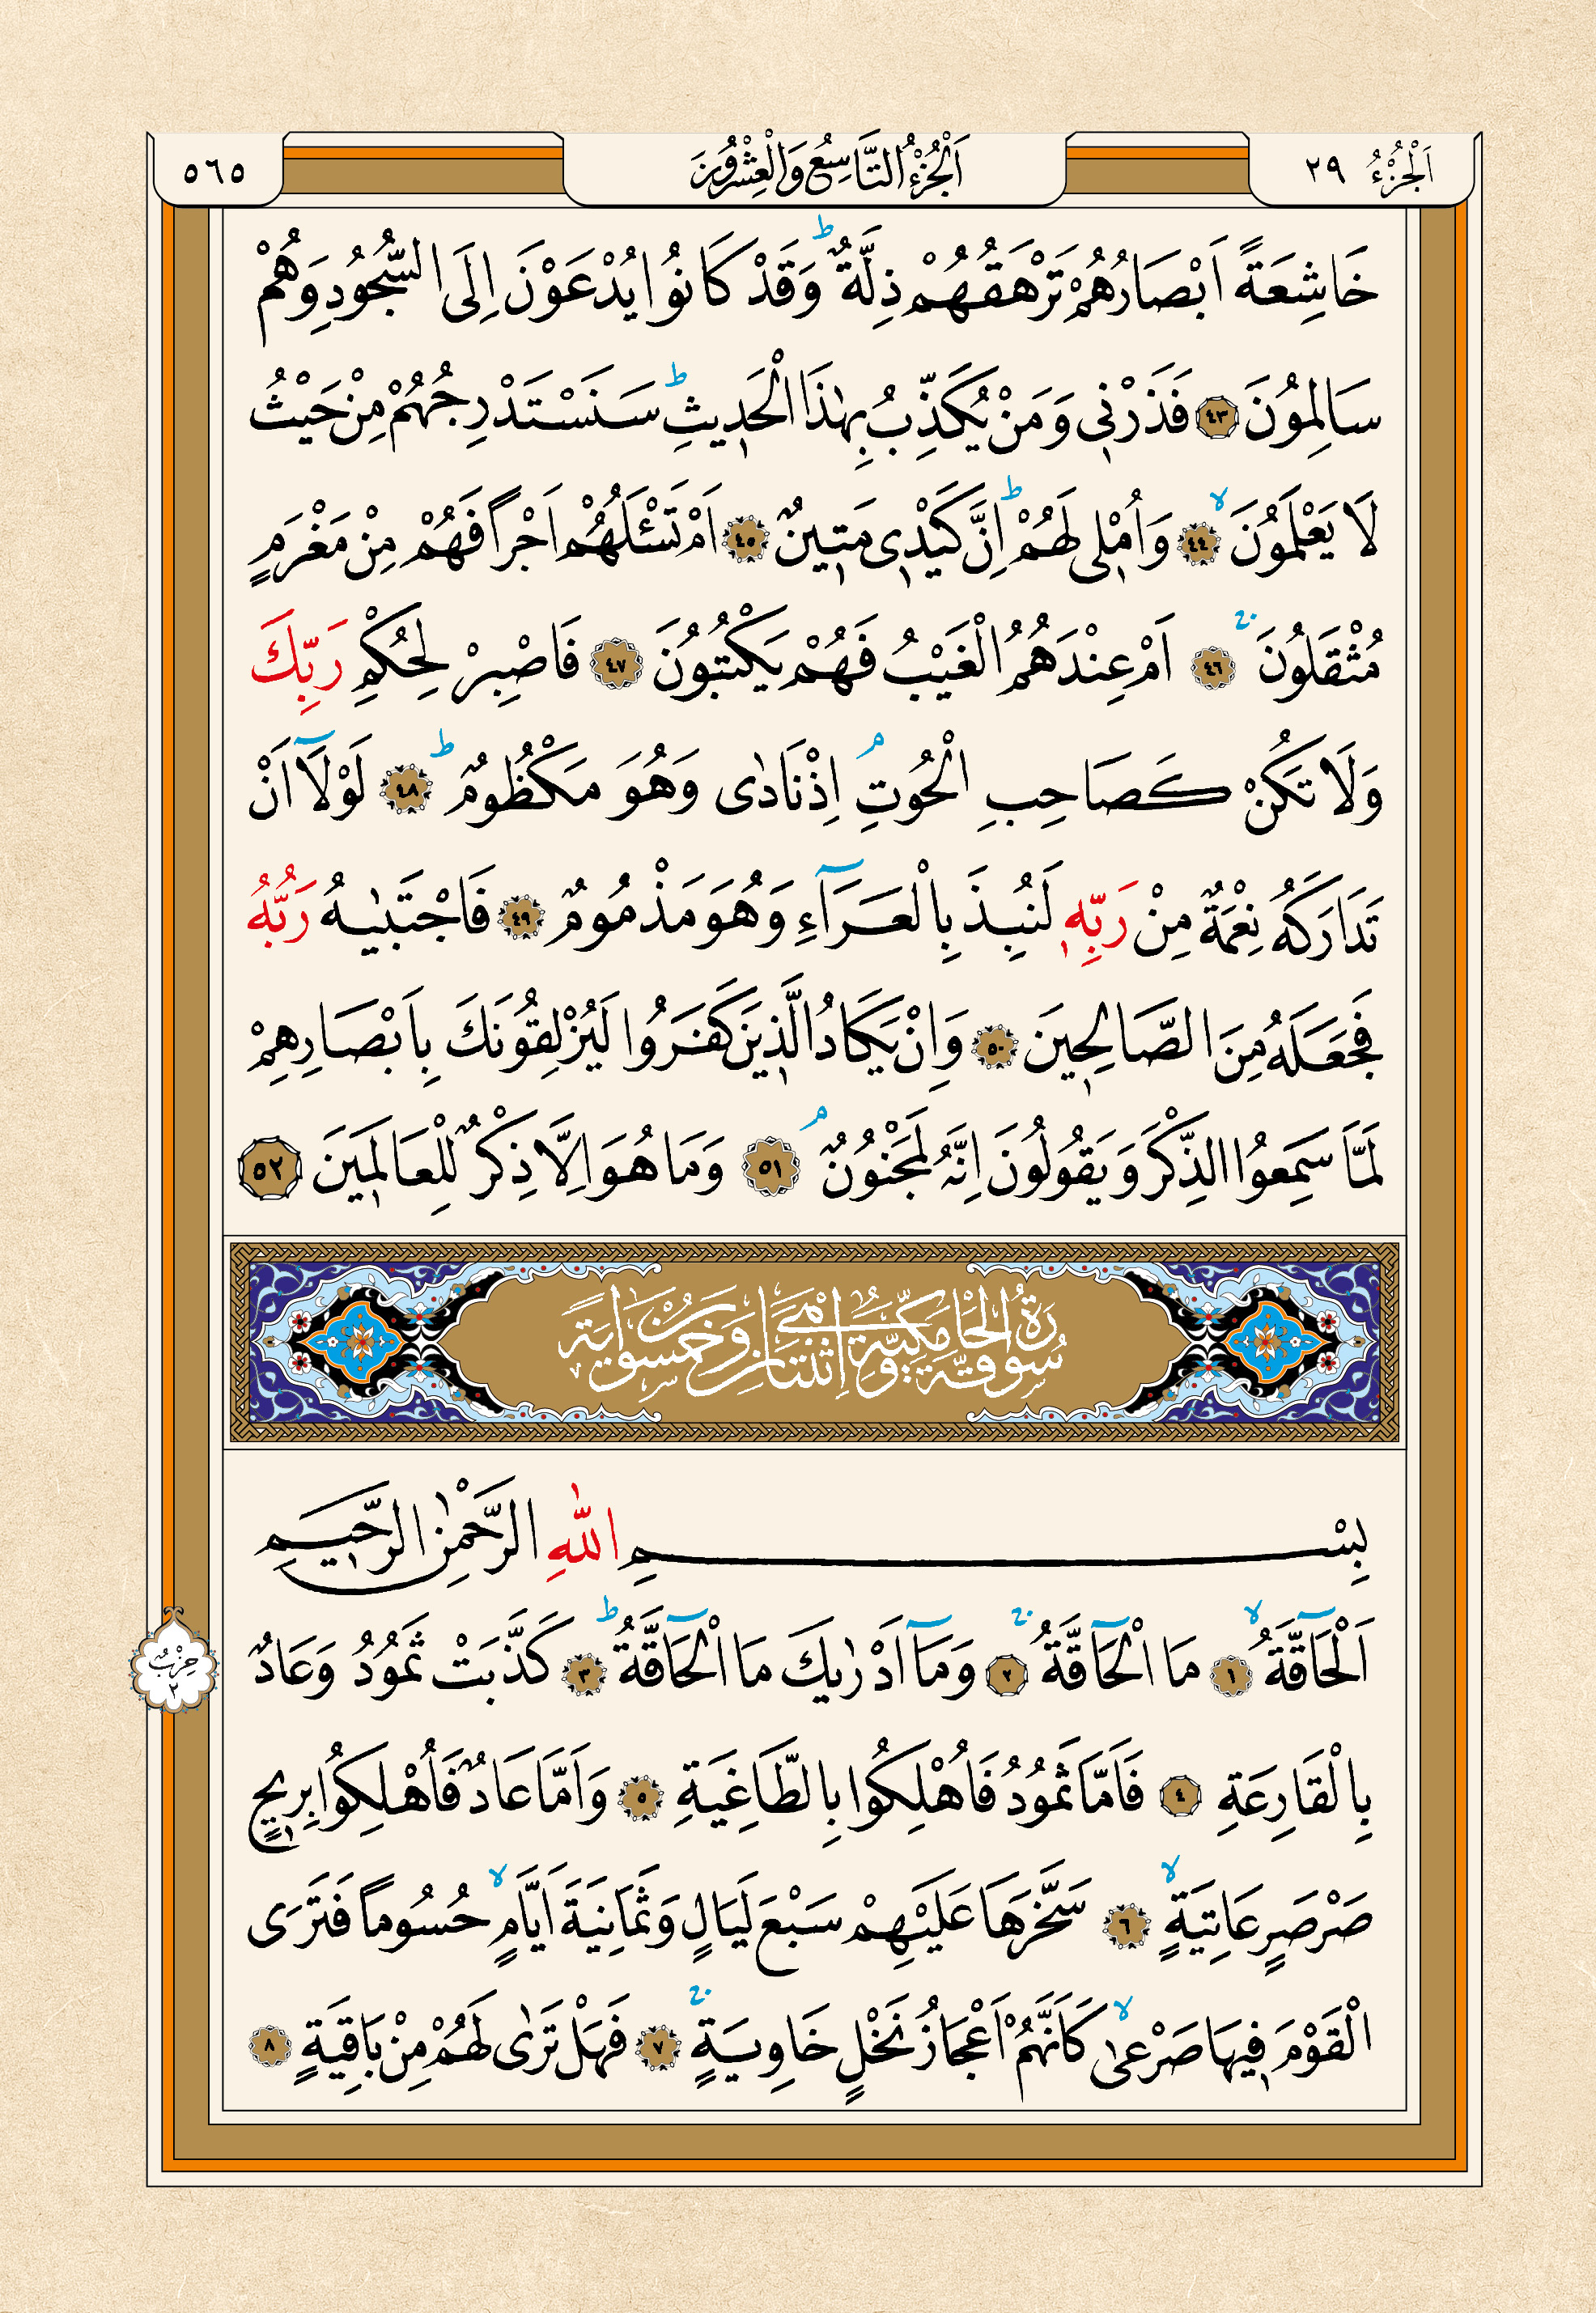 اَلْجُزْءُ ٢٩
اَلْجُزْءُ التَّاسِعُ وَالْعِشْرُونَ
٥٦٥
خَاشِعَةً اَبْصَارُهُمْ تَرْهَقُهُمْ ذِلَّةٌ ط وَقَدْ كَانُوا يُدْعَوْنَ اِلَى السُّجُودِ وَهُمْ
سَالِمُونَ ٤٣ فَذَرْنٖي وَمَنْ يُكَذِّبُ بِهٰذَا الْحَدٖيثِ ط سَنَسْتَدْرِجُهُمْ مِنْ حَيْثُ
لَا يَعْلَمُونَ لا ٤٤ وَاُمْلٖي لَهُمْ ط اِنَّ كَيْدٖي مَتٖينٌ ٤٥ اَمْ تَسْـَٔلُهُمْ اَجْرًا فَهُمْ مِنْ مَغْرَمٍ
مُثْقَلُونَ ج ٤٦ اَمْ عِنْدَهُمُ الْغَيْبُ فَهُمْ يَكْتُبُونَ ٤٧ فَاصْبِرْ لِحُكْمِ رَبِّكَ
وَلَا تَكُنْ كَصَاحِبِ الْحُوتِ م اِذْ نَادٰى وَهُوَ مَكْظُومٌ ط ٤٨ لَوْلَٓا اَنْ
تَدَارَكَهُ نِعْمَةٌ مِنْ رَبِّهٖ لَنُبِذَ بِالْعَرَٓاءِ وَهُوَ مَذْمُومٌ ٤٩ فَاجْتَبٰيهُ رَبُّهُ
فَجَعَلَهُ مِنَ الصَّالِحٖينَ ٥٠ وَاِنْ يَكَادُ الَّذٖينَ كَفَرُوا لَيُزْلِقُونَكَ بِاَبْصَارِهِمْ
لَمَّا سَمِعُوا الذِّكْرَ وَيَقُولُونَ اِنَّهُ لَمَجْنُونٌ م ٥١ وَمَا هُوَ اِلَّا ذِكْرٌ لِلْعَالَمٖينَ ٥٢
سُورَةُ الْحَاقَّةِ مَكِّيَّةٌ وَهِيَ اِثْنَتَانِ وَخَمْسُونَ اٰيَةً
بِسْمِ اللّٰهِ الرَّحْمٰنِ الرَّحٖيمِ
اَلْحَٓاقَّةُ لا ١ مَا الْحَٓاقَّةُ ج ٢ وَمَٓا اَدْرٰيكَ مَا الْحَٓاقَّةُ ط ٣ كَذَّبَتْ ثَمُودُ وَعَادٌ
حِزْبٌ
٢
بِالْقَارِعَةِ ٤ فَاَمَّا ثَمُودُ فَاُهْلِكُوا بِالطَّاغِيَةِ ٥ وَاَمَّا عَادٌ فَاُهْلِكُوا بِرٖيحٍ
صَرْصَرٍ عَاتِيَةٍ لا ٦ سَخَّرَهَا عَلَيْهِمْ سَبْعَ لَيَالٍ وَثَمَانِيَةَ اَيَّامٍ لا حُسُومًا فَتَرَى
الْقَوْمَ فٖيهَا صَرْعٰى لا كَاَنَّهُمْ اَعْجَازُ نَخْلٍ خَاوِيَةٍ ج ٧ فَهَلْ تَرٰى لَهُمْ مِنْ بَاقِيَةٍ ٨